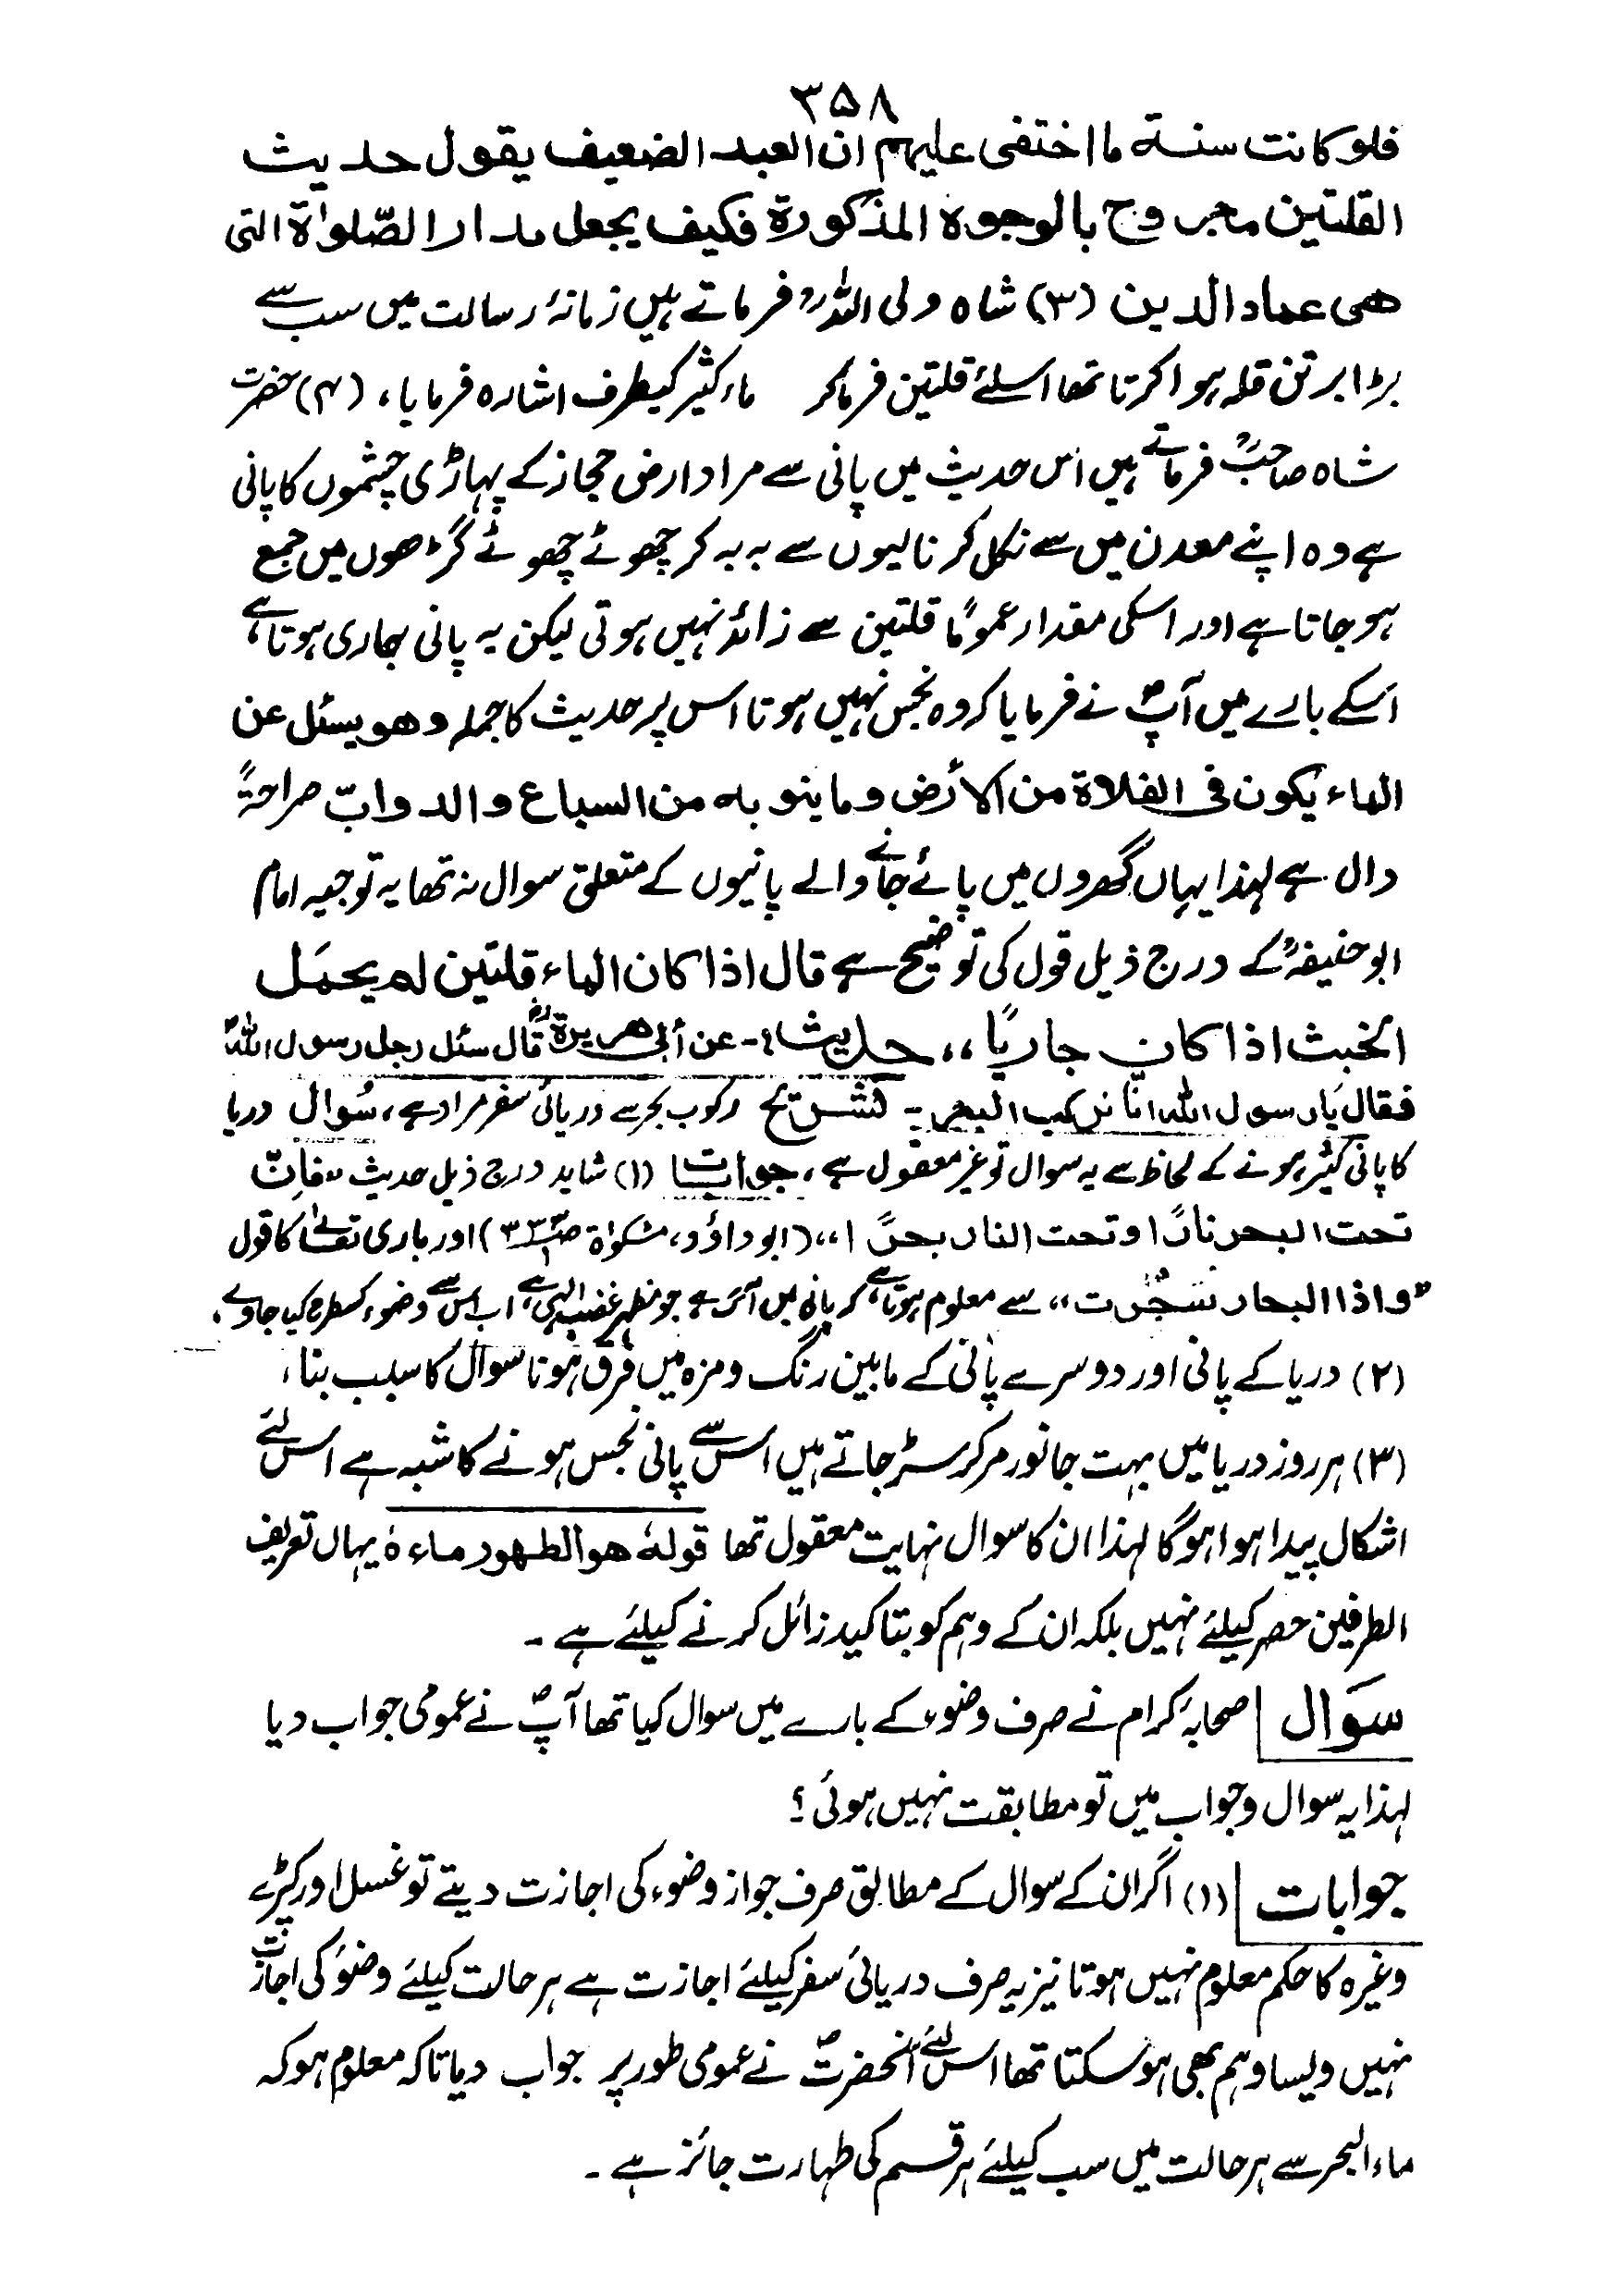 ۳۵۸
فلو كانت سنة ما اختفى عليهم ان العبد الضعيف يقول حديث
القلتين مجروح بالوجوه المذكورة فكيف يجعل مدار الصّلوٰة التى
هى عماد الدين (۳) شاہ ولی اللہؒ فرماتے ہیں زمانۂ رسالت میں سب سے
بڑا برتن قلہ ہوا کرتا تھا اسلئے قلتین فرماکر ماء کثیر کیطرف اشارہ فرمایا، (۴) حضرت
شاہ صاحبؒ فرماتے ہیں اس حدیث میں پانی سے مراد ارض حجاز کے پہاڑی چشموں کا پانی
ہے وہ اپنے معدن میں سے نکل کر نالیوں سے بہ بہ کر چھوٹے چھوٹے گڑھوں میں جمع
ہو جاتا ہے اور اسکی مقدار عمومًا قلتین سے زائد نہیں ہوتی لیکن یہ پانی جاری ہوتا ہے
اسکے بارے میں آپؐ نے فرمایا کہ وہ نجس نہیں ہوتا اس پر حدیث کا جملہ وهو يسئل عن
الماء يكون فى الفلاة من الأرض وما ينوبه من السباع والدوابّ صراحۃً
دال ہے لہذا یہاں گھروں میں پائے جانے والے پانیوں کے متعلق سوال نہ تھا یہ توجیہ امام
ابو حنیفہؒ کے درج ذیل قول کی توضیح ہے قال اذا كان الماء قلتين لم يحمل
الخبث اذا كان جاريًا ،، حديث :- عن أبى هريرةؓ قال سئل رجل رسول اللهؐ
فقال يا رسول الله انا نركب البحر :- تشریح رکوب بحر سے دریائی سفر مراد ہے، سُوال دریا
کا پانی کثیر ہونے کے لحاظ سے یہ سوال تو غیر معقول ہے، جوابات (۱) شاید درج ذیل حدیث "فانّ
تحت البحر نارًا وتحت النار بحرًا،، (ابوداؤد، مشکوٰۃ ص۳۳۳) اور باری تعالیٰ کا قول
"واذا البحار سُجّرت،، سے معلوم ہوتا ہے کہ پانی میں آگ ہے جو مظہر غضب الٰہی ہے، اب اس سے وضوء کسطرح کیا جاوے،
(۲) دریا کے پانی اور دوسرے پانی کے مابین رنگ ومزہ میں فرق ہونا سوال کا سبب بنا،
(۳) ہر روز دریا میں بہت جانور مرکر سڑ جاتے ہیں اس سے پانی نجس ہونے کا شبہ ہے اس لئے
اشکال پیدا ہوا ہوگا لہذا ان کا سوال نہایت معقول تھا قولهٗ هو الطهور ماءهٗ یہاں تعریف
الطرفین حصر کیلئے نہیں بلکہ ان کے وہم کو بتاکید زائل کرنے کیلئے ہے ۔
سوال صحابۂ کرام نے صرف وضوء کے بارے میں سوال کیا تھا آپؐ نے عمومی جواب دیا
لہذا یہ سوال وجواب میں تو مطابقت نہیں ہوئی ؟
جوابات (۱) اگر ان کے سوال کے مطابق صرف جواز وضوء کی اجازت دیتے تو غسل اور کپڑے
وغیرہ کا حکم معلوم نہیں ہوتا نیز یہ صرف دریائی سفر کیلئے اجازت ہے ہر حالت کیلئے وضوء کی اجازت
نہیں ویسا وہم بھی ہوسکتا تھا اس لئے آنحضرتؐ نے عمومی طور پر جواب دیا تاکہ معلوم ہو کہ
ماء البحر سے ہر حالت میں سب کیلئے ہر قسم کی طہارت جائز ہے ۔